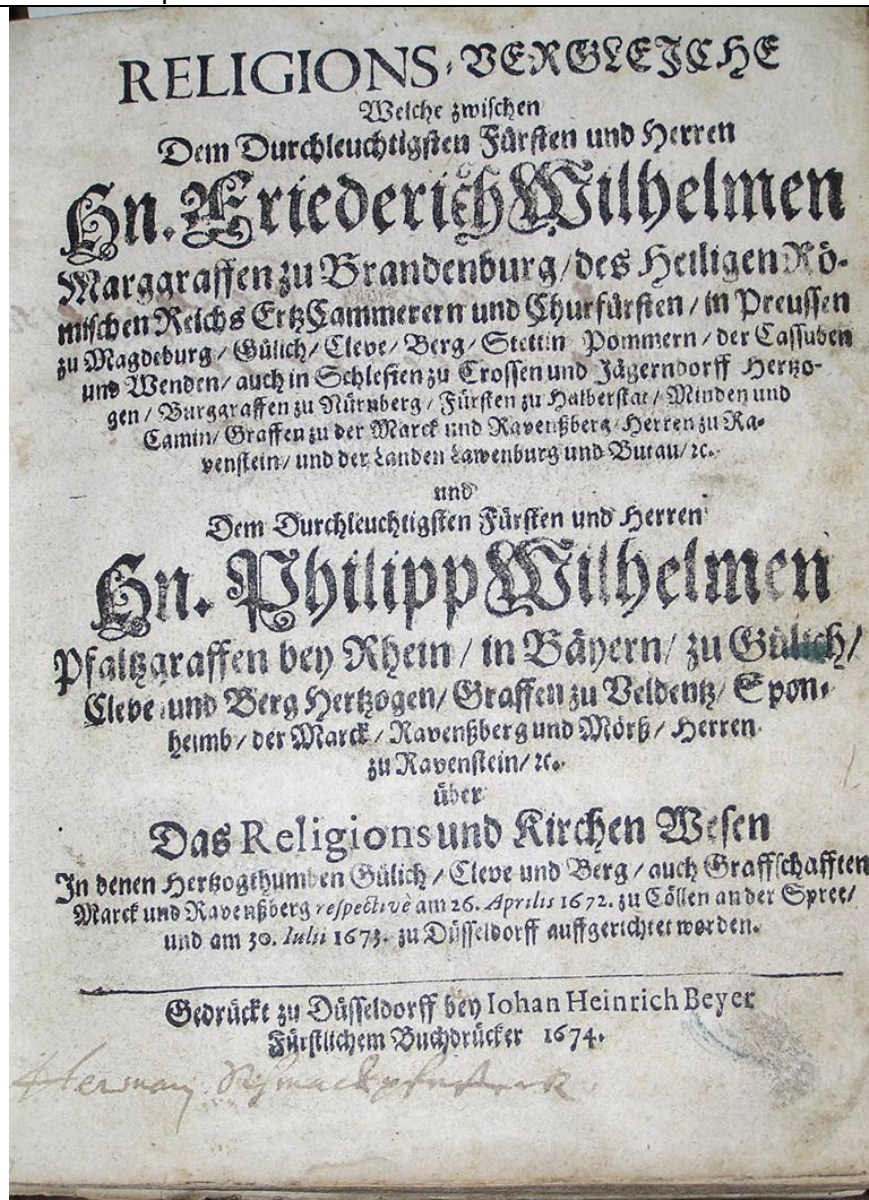 RELIGIONS-VERGLEICHE
Welche zwischen
Dem Durchleuchtigsten Fürsten und Herren
Hn. Friederich Wilhelmen
Marggraffen zu Brandenburg/ des Heiligen Rö-
mischen Reichs ErtzCammerern und Churfürsten/ in Preussen
zu Magdeburg/ Gülich/ Cleve/ Berg/ Stettin Pommern/ der Cassuben
und Wenden/ auch in Schlesien zu Crossen und Jägerndorff Hertzo-
gen/ Burggraffen zu Nürnberg/ Fürsten zu Halberstat/ Minden und
Camin/ Graffen zu der Marck und Ravenßberg/ Herren zu Ra-
venstein/ und der Landen Lawenburg und Butau/ ꝛc.
und
Dem Durchleuchtigsten Fürsten und Herren
Hn. Philipp Wilhelmen
Pfaltzgraffen bey Rhein/ in Bäyern/ zu Gülich/
Cleve und Berg Hertzogen/ Graffen zu Veldentz/ Spon-
heimb/ der Marck/ Ravenßberg und Mörß/ Herren
zu Ravenstein/ ꝛc.
über
Das Religions und Kirchen Wesen
In denen Hertzogthumben Gülich/ Cleve und Berg/ auch Graffschafften
Marck und Ravenßberg respectivè am 26. Aprilis 1672. zu Cöllen an der Spree/
und am 30. Iulii 1673. zu Düsseldorff auffgerichtet worden.
Gedrückt zu Düsseldorff bey Iohan Heinrich Beyer
Fürstlichem Buchdrücker 1674.
Herman